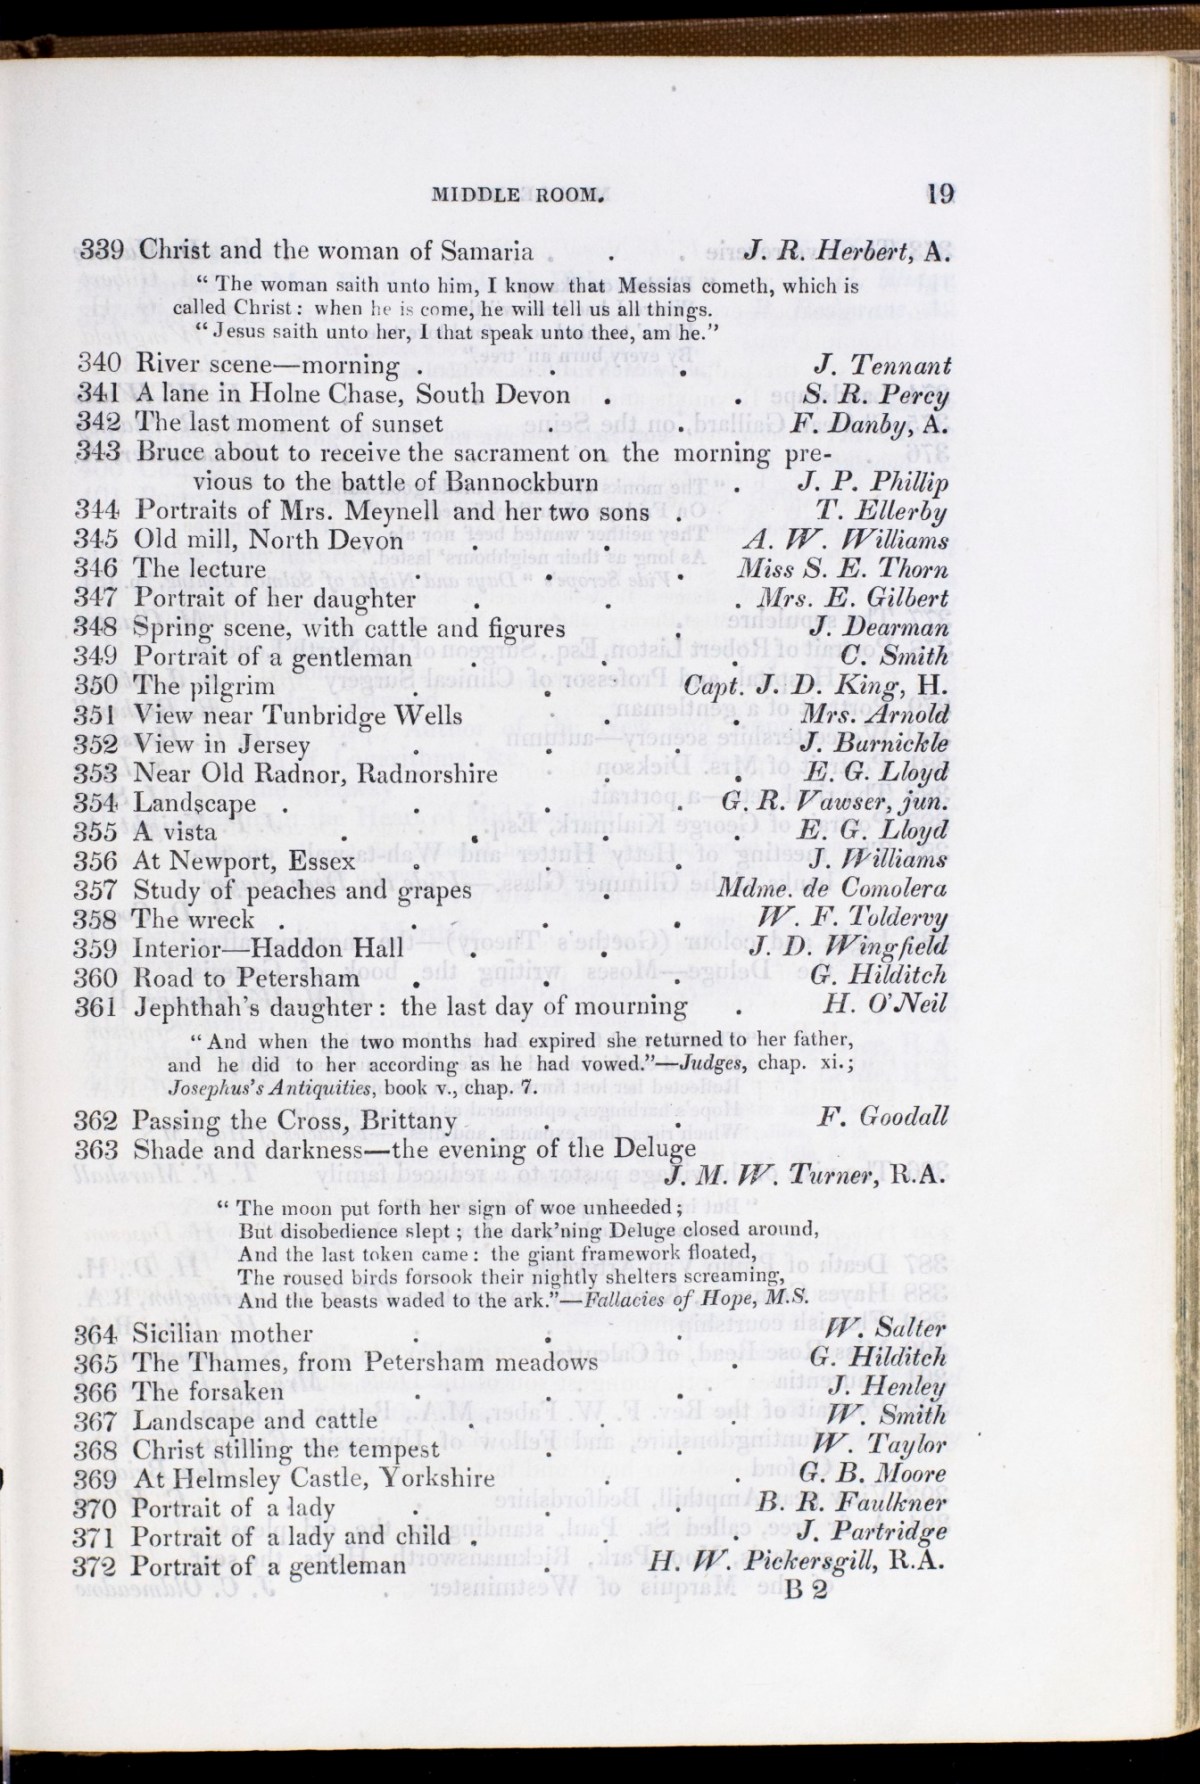 MIDDLE ROOM. 19
339 Christ and the woman of Samaria . . J. R. Herbert, A.
“ The woman saith unto him, I know that Messias cometh, which is
called Christ : when he is come, he will tell us all things.
“ Jesus saith unto her, I that speak unto thee, am he.”
340 River scene—morning . . . J. Tennant
341 A lane in Holne Chase, South Devon . . S. R. Percy
342 The last moment of sunset . . F. Danby, A.
343 Bruce about to receive the sacrament on the morning pre-
vious to the battle of Bannockburn . J. P. Phillip
344 Portraits of Mrs. Meynell and her two sons . T. Ellerby
345 Old mill, North Devon . . A. W. Williams
346 The lecture . . . Miss S. E. Thorn
347 Portrait of her daughter . . . Mrs. E. Gilbert
348 Spring scene, with cattle and figures . J. Dearman
349 Portrait of a gentleman . . . C. Smith
350 The pilgrim . . Capt. J. D. King, H.
351 View near Tunbridge Wells . . Mrs. Arnold
352 View in Jersey . . . J. Burnickle
353 Near Old Radnor, Radnorshire . . E. G. Lloyd
354 Landscape . . . . G. R. Vawser, jun.
355 A vista . . . . E. G. Lloyd
356 At Newport, Essex . . . J. Williams
357 Study of peaches and grapes . Mdme. de Comolera
358 The wreck . . . . W. F. Toldervy
359 Interior—Haddon Hall . . J. D. Wingfield
360 Road to Petersham . . . G. Hilditch
361 Jephthah’s daughter : the last day of mourning . H. O’Neil
“ And when the two months had expired she returned to her father,
and he did to her according as he had vowed.”—Judges, chap. xi. ;
Josephus’s Antiquities, book v., chap. 7.
362 Passing the Cross, Brittany . . F. Goodall
363 Shade and darkness—the evening of the Deluge
J. M. W. Turner, R.A.
“ The moon put forth her sign of woe unheeded ;
But disobedience slept ; the dark’ning Deluge closed around,
And the last token came : the giant framework floated,
The roused birds forsook their nightly shelters screaming,
And the beasts waded to the ark.”—Fallacies of Hope, M.S.
364 Sicilian mother . . . W. Salter
365 The Thames, from Petersham meadows . G. Hilditch
366 The forsaken . . . J. Henley
367 Landscape and cattle . . . W. Smith
368 Christ stilling the tempest . . W. Taylor
369 At Helmsley Castle, Yorkshire . . G. B. Moore
370 Portrait of a lady . . . B. R. Faulkner
371 Portrait of a lady and child . . . J. Partridge
372 Portrait of a gentleman . H. W. Pickersgill, R.A.
B 2